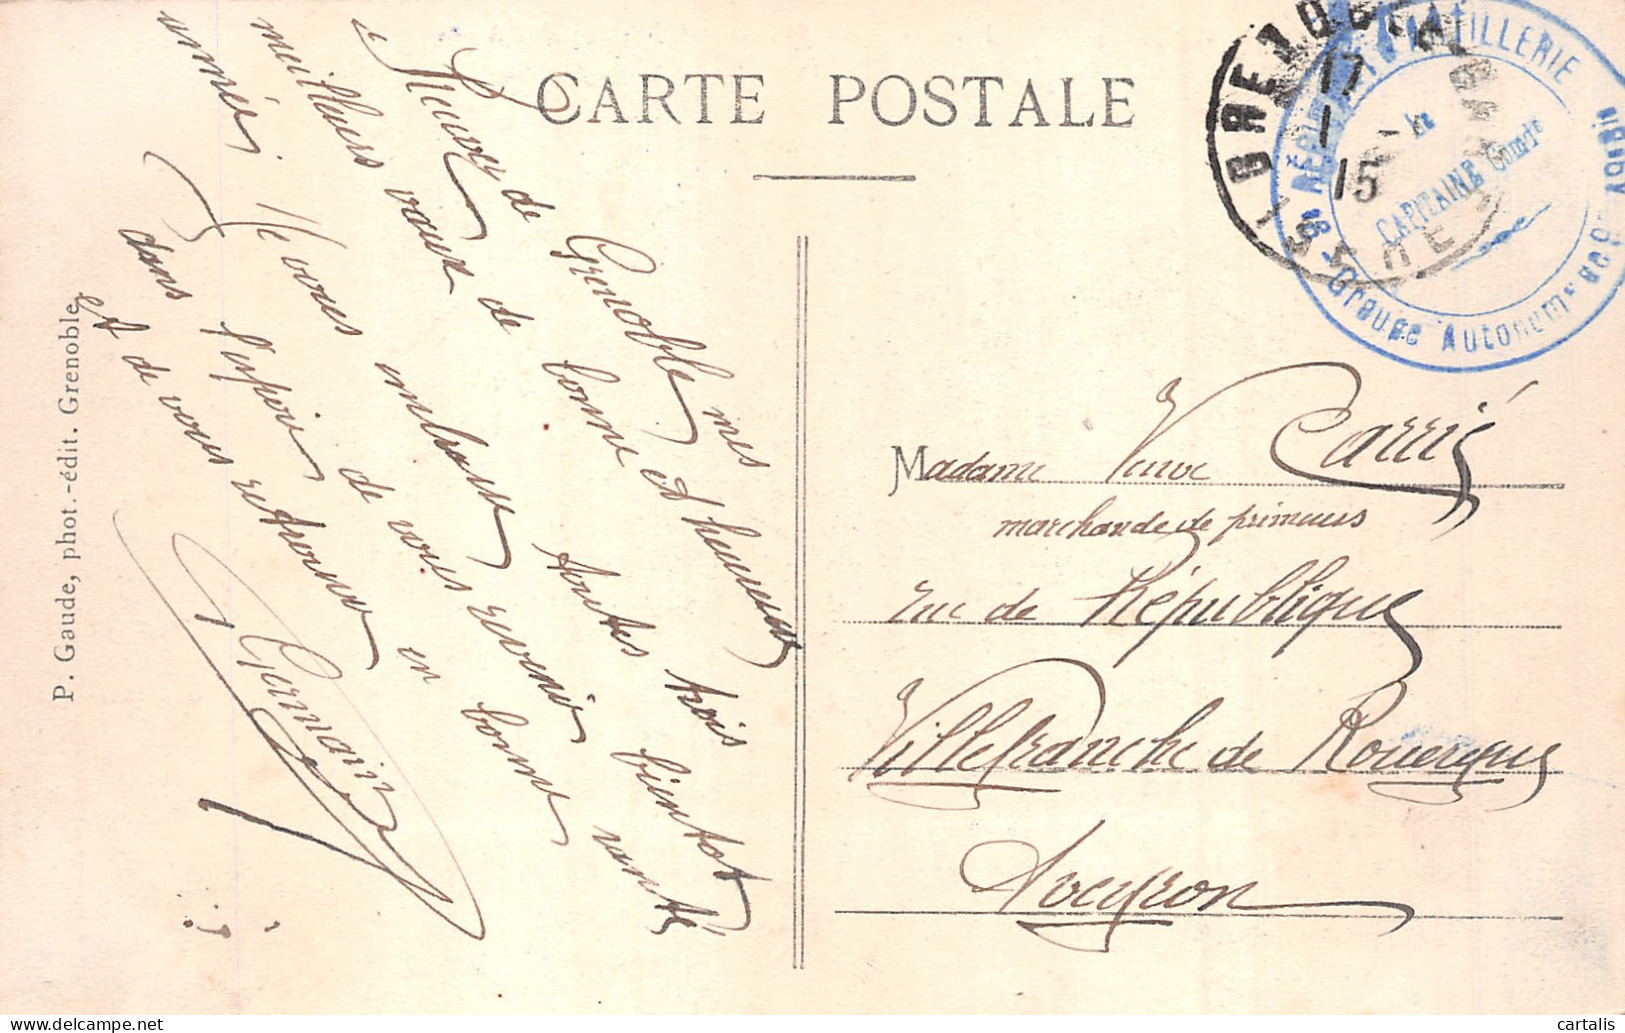 CARTE POSTALE
Recevez de Grenoble mes
meilleurs vœux de bonne et heureuse
année. Je vous embrasse toutes trois
dans l'espoir de vous revenir bientot
et de vous retrouver en bonne santé
Germain
P. Gaude, phot.-édit. Grenoble
17
1
15
ISÈRE
RÉGIMENT D'ARTILLERIE
Le
CAPITAINE Comdt
Groupe Autonome
Madame Veuve Carrié
marchande de primeurs
rue de République
Villefranche de Rouergue
Aveyron
cartalis
delcampe.net